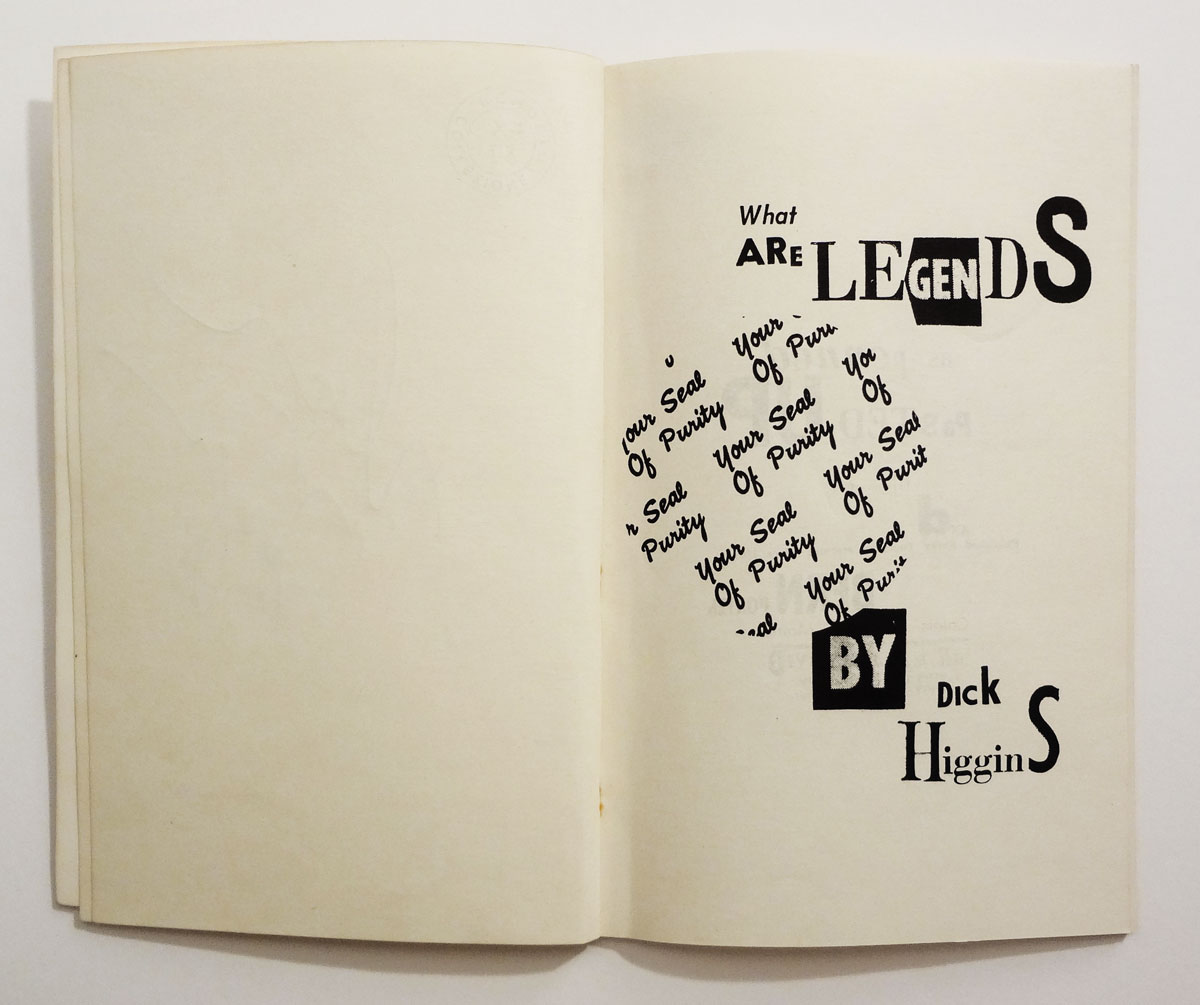 What
ARE LEGENDS
Your
Of Puri
Your Seal
Of Purity
You
Of
Your Seal
Of Purity
Your Seal
Of Purit
r Seal
Purity
Your Seal
Of Purity
Your Seal
Of Purit
eal
BY
Dick
HigginS